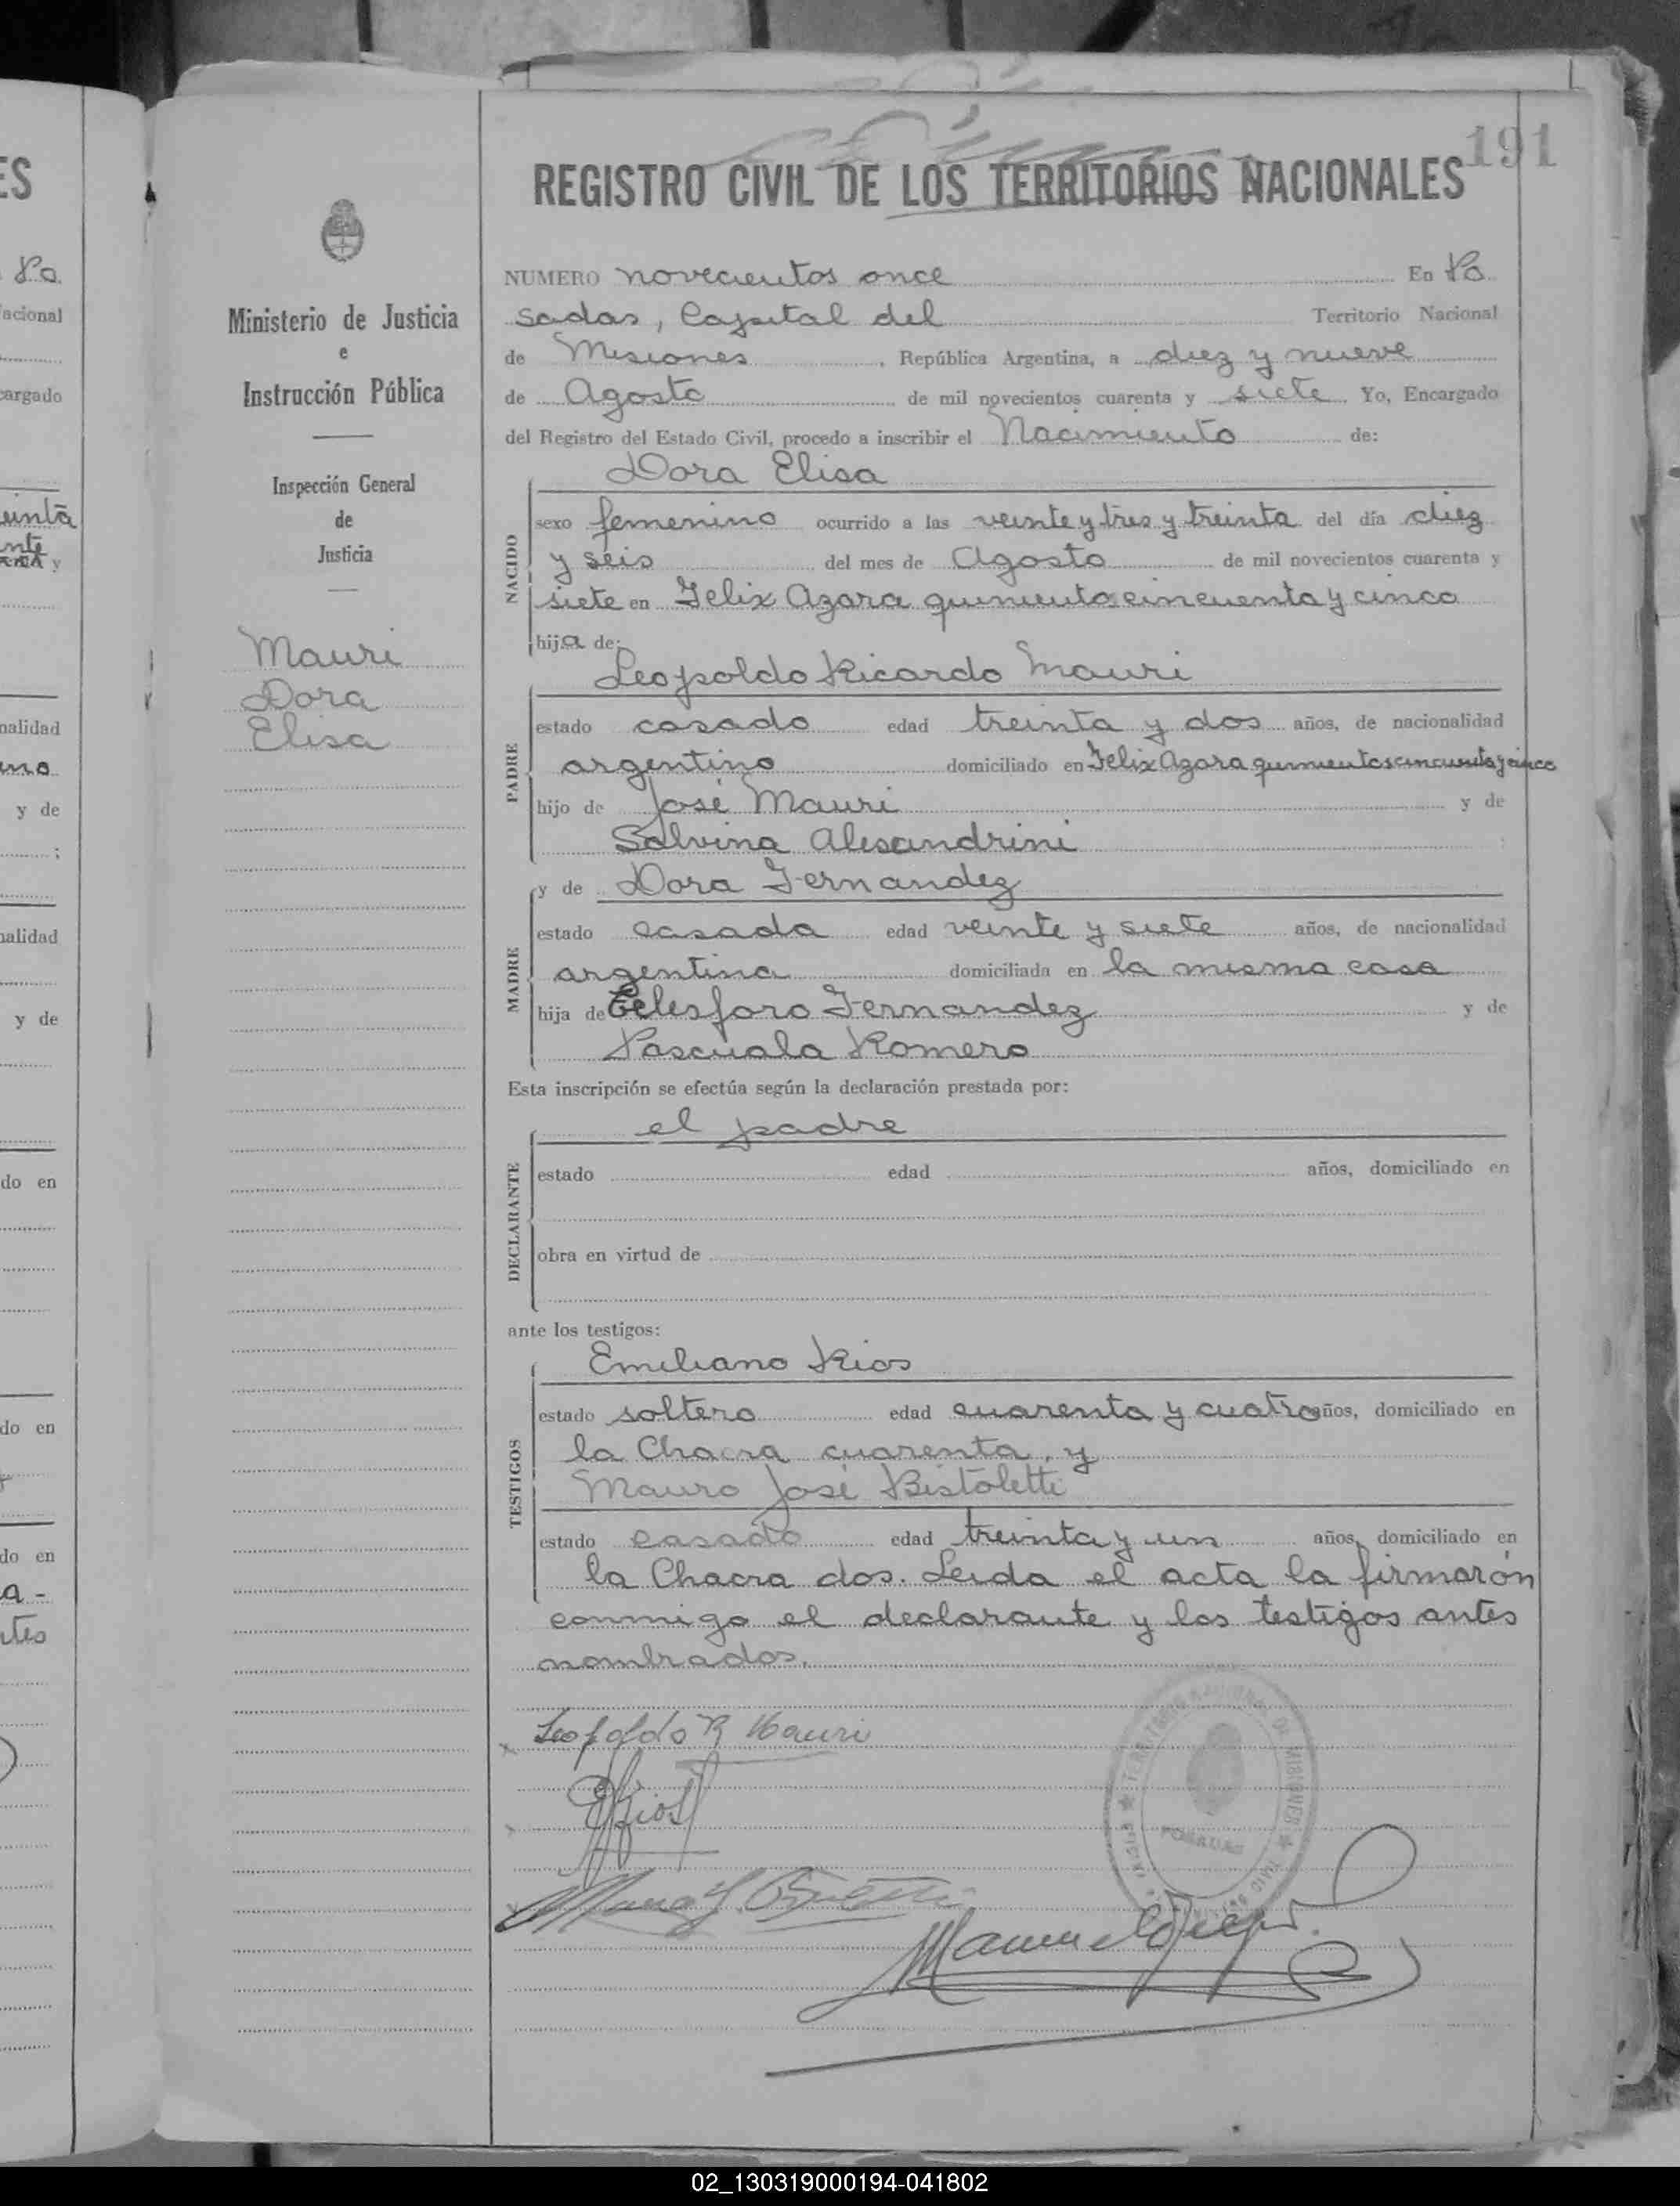 191
REGISTRO CIVIL DE LOS TERRITORIOS NACIONALES
Ministerio de Justicia
e
Instrucción Pública
Inspección General
de
Justicia
Mauri
Dora
Elisa
NUMERO novecientos once En Po
sadas, Capital del Territorio Nacional
de Misiones, República Argentina, a diez y nueve
de Agosto de mil novecientos cuarenta y siete Yo, Encargado
del Registro del Estado Civil, procedo a inscribir el Nacimiento de:
Dora Elisa
NACIDO
sexo femenino ocurrido a las veinte y tres y treinta del día diez
y seis del mes de Agosto de mil novecientos cuarenta y
siete en Felix Azara quinientos cincuenta y cinco
hija de:
Leopoldo Ricardo Mauri
PADRE
estado casado edad treinta y dos años, de nacionalidad
argentino domiciliado en Felix Azara quinientos cincuenta y cinco
hijo de José Mauri y de
Salvina Alesandrini
y de Dora Fernandez
MADRE
estado casada edad veinte y siete años, de nacionalidad
argentina domiciliada en la misma casa
hija de Telesforo Fernandez y de
Pascuala Romero
Esta inscripción se efectúa según la declaración prestada por:
el padre
DECLARANTE
estado edad años, domiciliado en
obra en virtud de
ante los testigos:
Emiliano Rios
TESTIGOS
estado soltero edad cuarenta y cuatro años, domiciliado en
la Chacra cuarenta, y
Mauro José Bistoletti
estado casado edad treinta y un años, domiciliado en
la Chacra dos. Leida el acta la firmarón
conmigo el declarante y los testigos antes
nombrados.
Leopoldo R Mauri
ERios
POSADAS
02_130319000194-041802